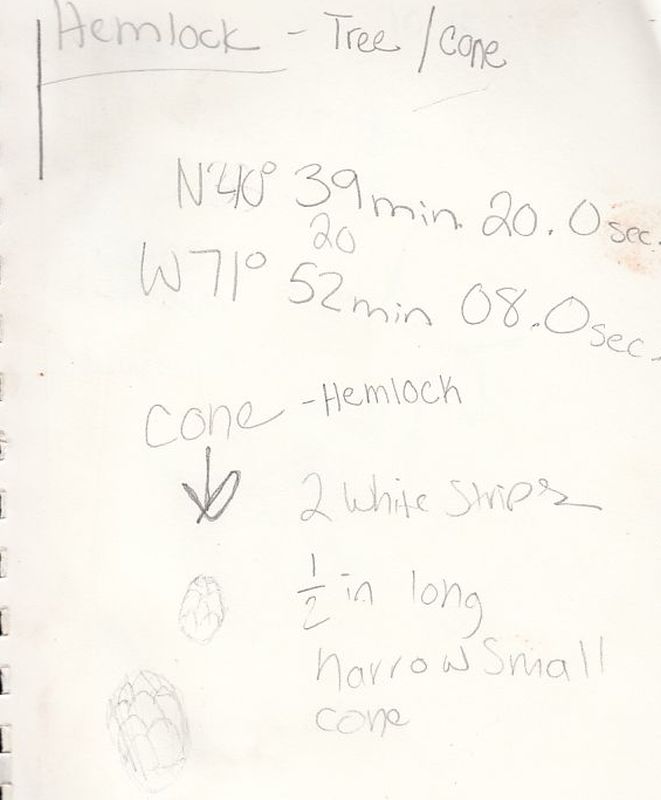 Hemlock - Tree / cone
N 40° 39 min 20.0 sec.
20
W 71° 52 min 08.0 sec.
cone - Hemlock
2 white strips
1/2 in long
narrow small
cone